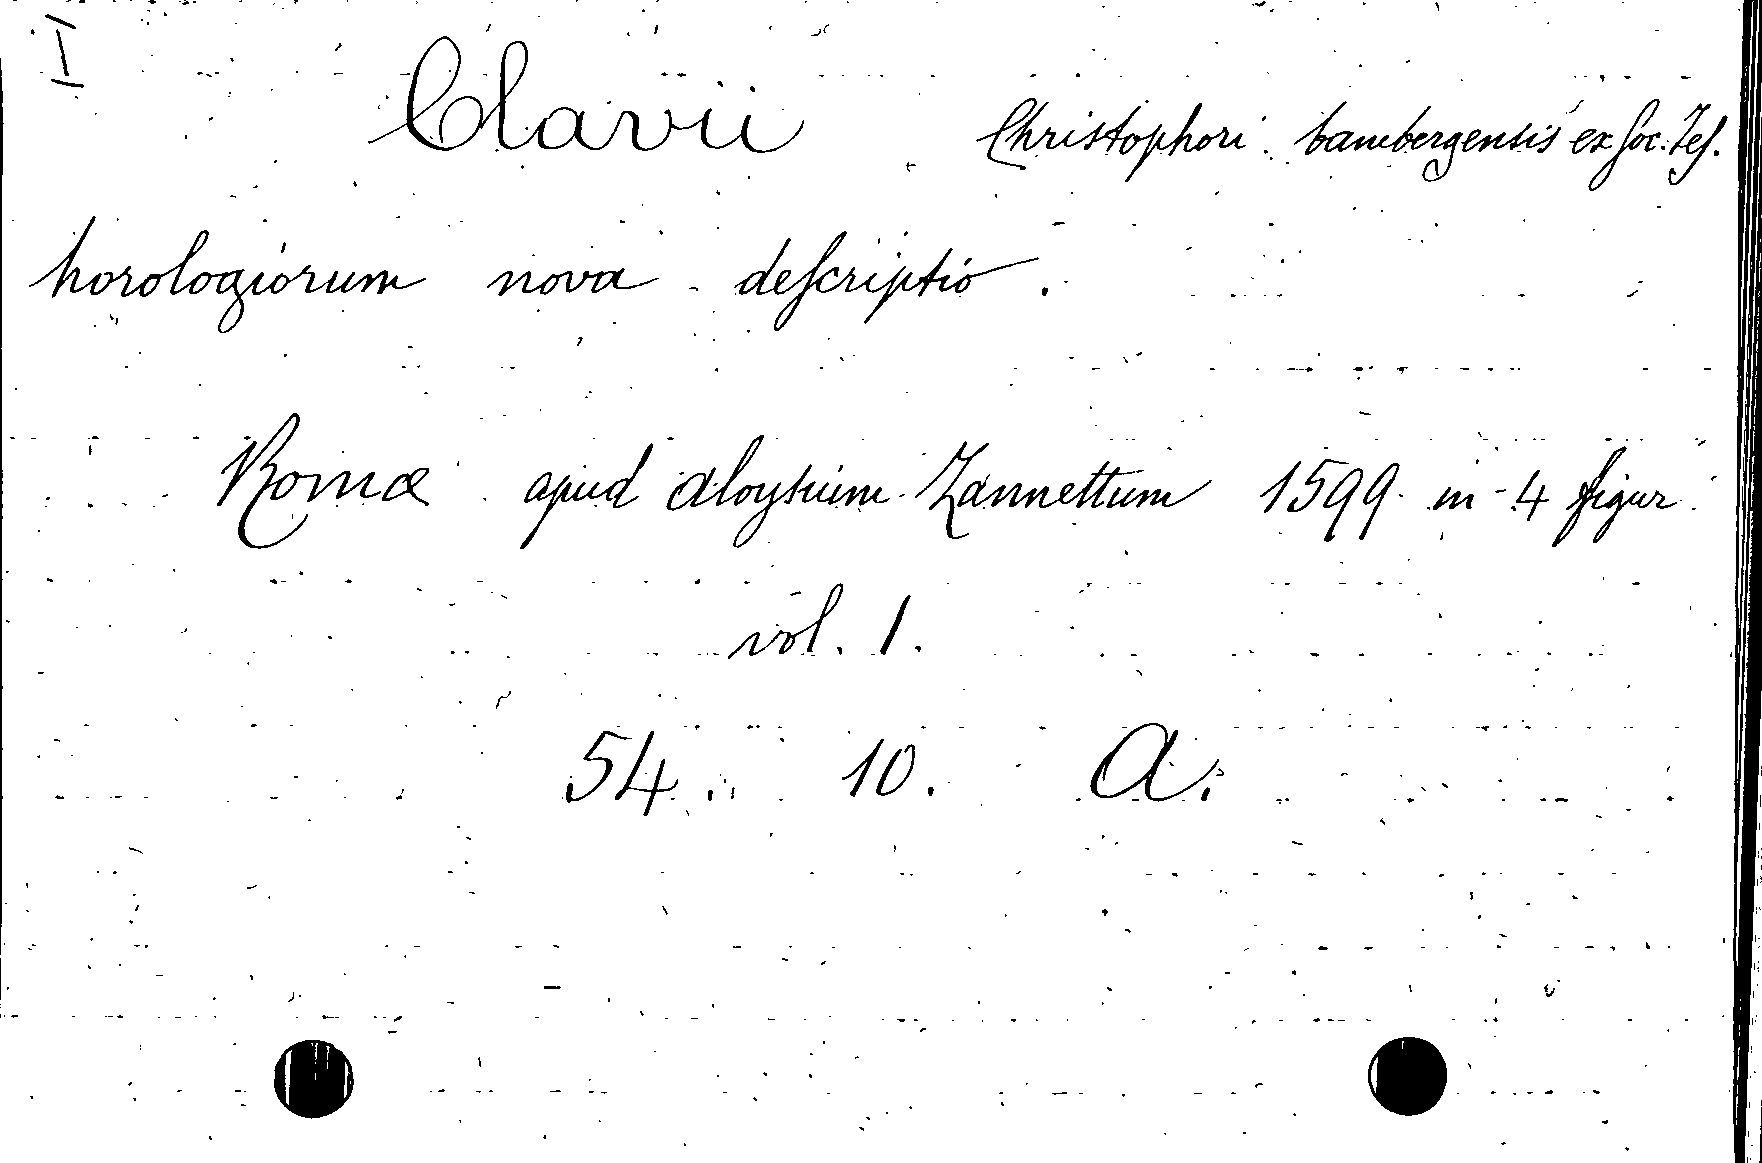 I
Clavii Christophori bambergensis ex ſoc. Jeſ.
horologiorum nova deſcriptio.
Romæ apud aloysium Zannettum 1599 in-4 figur
vol. 1.
54. 10. A.